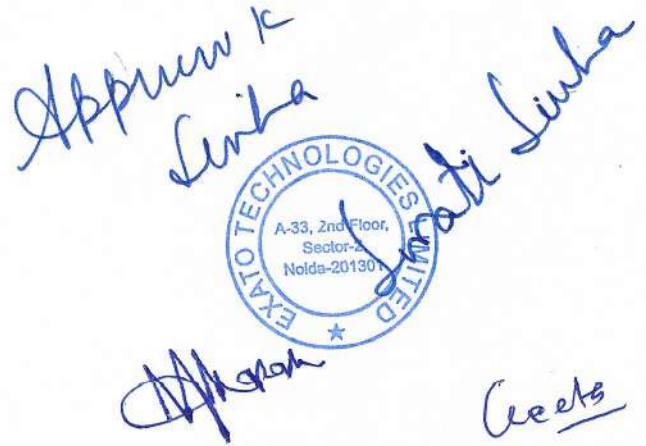 Appuuv K
Sinha
Swati Sinha
EXATO TECHNOLOGIES LIMITED
A-33, 2nd Floor,
Sector-2
Noida-201301
Geeta